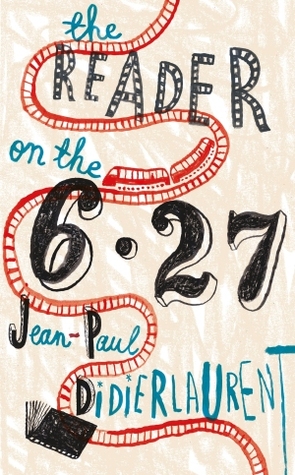 the
READER
on the
6·27
Jean-Paul
DiDiERLAURENT